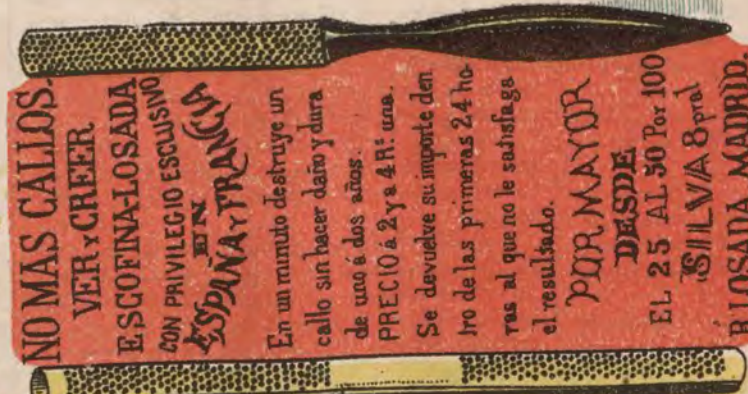 NO MAS CALLOS.
VER Y CREER
ESCOFINA-LOSADA
CON PRIVILEGIO ESCLUSIVO
EN
ESPAÑA Y FRANCIA
En un minuto destruye un
callo sin hacer daño y dura
de uno á dos años.
PRECIO á 2 y a 4 Rs. una.
Se devuelve su importe den
tro de las primeras 24 ho-
ras al que no le satisfaga
el resultado.
POR MAYOR
DESDE
EL 25 AL 50 Por 100
SILVA 8 pral
R. LOSADA. MADRID.